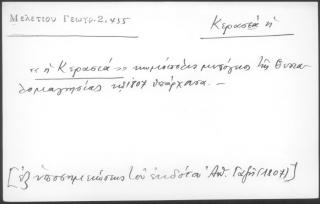 Μελετίου Γεωγρ. 2, 435
Κερασιά ἡ
« ἡ Κερασιά » κωμόπολις μητόχιος τῆς Θεττα-
λομαγνησίας τῷ 1807 ὑπάρχουσα. —
[ἐξ ὑποσημειώσεως τοῦ ἐκδότου Ἀνθ. Γαζῆ (1807)]